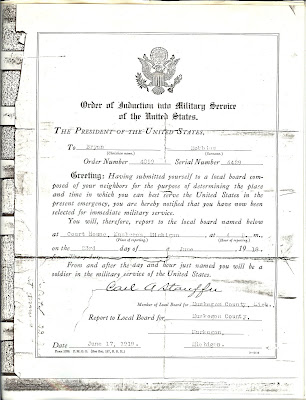 Order of Induction into Military Service
of the United States.
THE PRESIDENT OF THE UNITED STATES,
To
(Christian name.) (Surname.)
Order Number Serial Number
Greeting: Having submitted yourself to a local board composed
of your neighbors for the purpose of determining the place
and time in which you can best serve the United States in the
present emergency, you are hereby notified that you have now been
selected for immediate military service.
You will, therefore, report to the local board named below
at Court House, Muskegon, Michigan at m.,
(Place of reporting.) (Hour of reporting.)
on the 23rd day of June 19
From and after the day and hour just named you will be a
soldier in the military service of the United States.
Carl A Stauffer
Member of Local Board for Muskegon County, Mich.
Report to Local Board for Muskegon County,
Muskegon,
Date June 17, Michigan.